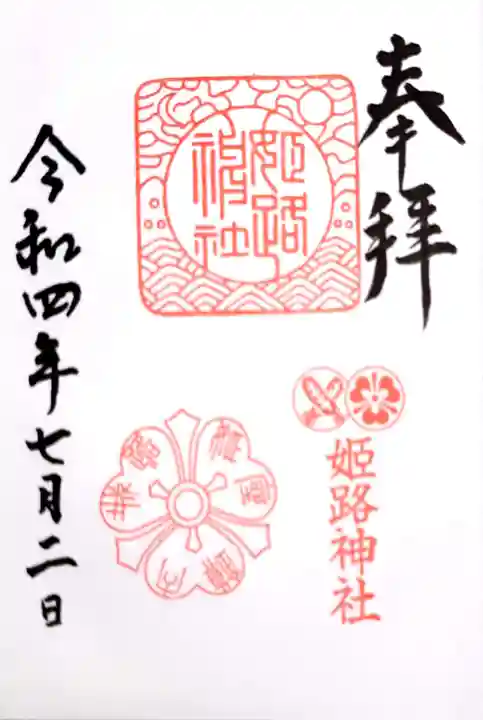 奉拝
姫路神社
姫路神社
令和四年七月二日